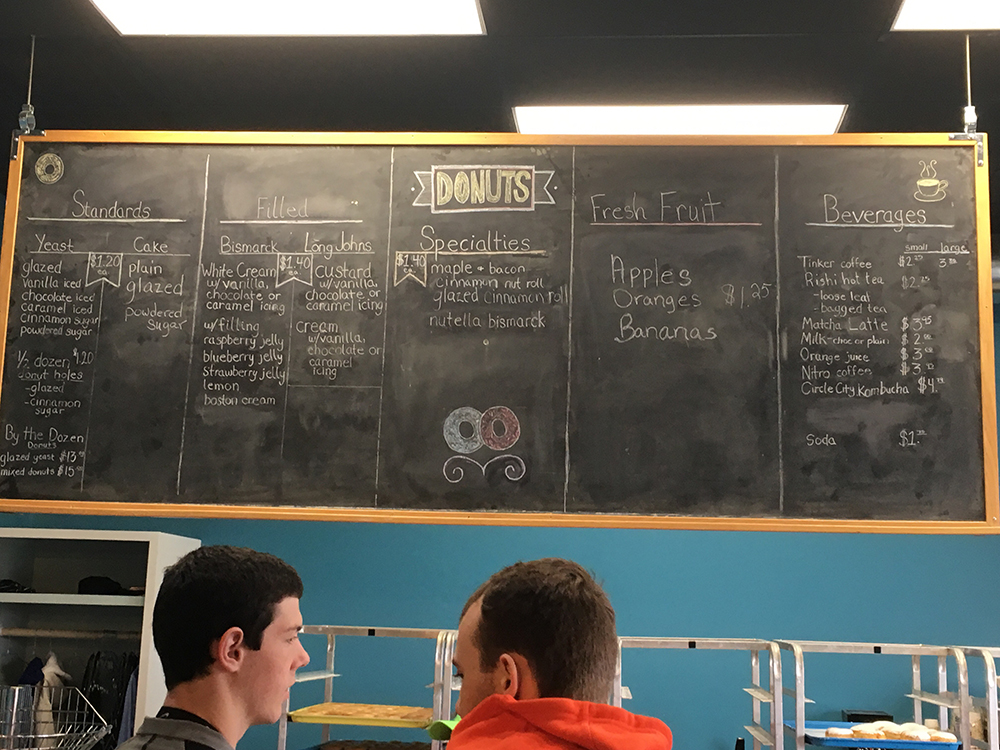 DONUTS
Standards
Yeast
$1.20
ea.
glazed
vanilla iced
chocolate iced
caramel iced
cinnamon sugar
powdered sugar
1/2 dozen $4.20
donut holes
-glazed
-cinnamon
sugar
By the Dozen
Donuts
glazed yeast $13
mixed donuts $15
Cake
plain
glazed
powdered
sugar
Filled
Bismarck
$1.40
ea.
White Cream
w/vanilla,
chocolate or
caramel icing
w/filling
raspberry jelly
blueberry jelly
Strawberry jelly
lemon
boston cream
Long Johns
custard
w/vanilla,
chocolate or
caramel icing
cream
w/vanilla,
chocolate or
caramel
icing
Specialties
$1.40
ea.
maple + bacon
cinnamon nut roll
glazed cinnamon roll
nutella bismarck
Fresh Fruit
Apples
Oranges $1.25
Bananas
Beverages
small large
Tinker coffee $2
Rishi hot tea $2.25
-loose leaf
-bagged tea
Matcha Latte $3
Milk-choc or plain $2
Orange juice $3
Nitro coffee $3
Circle City Kombucha $4
Soda $1